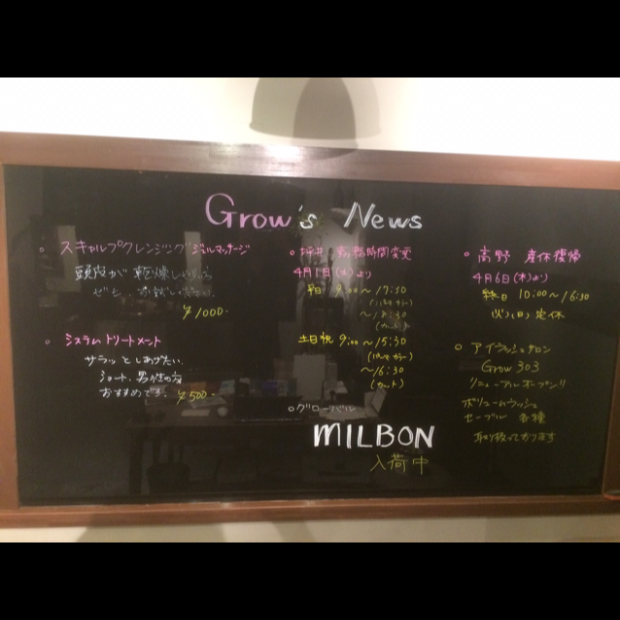 Grow's News
○ スキャルプクレンジング ジェルマッサージ
頭皮が 乾燥しいる方
ぜひ、お試しください
¥1000-
○ システムトリートメント
サラッとしあげたい、
ショート、男性の方
おすすめです。 ¥500-
○ 坪井 勤務時間変更
4月1日(土)より
平日 9:00〜17:30
(パーマ カラー)
〜18:30
(カット)
土日祝 9:00〜15:30
(パーマ カラー)
〜16:30
(カット)
○グローバル
MILBON
入荷中
○ 高野 産休復帰
4月6日(木)より
終日 10:00〜16:30
(火)(日)定休
○ アイラッシュサロン
Grow 303
リニューアルオープン!!
ボリュームラッシュ
セーブル 各種
取り扱っております